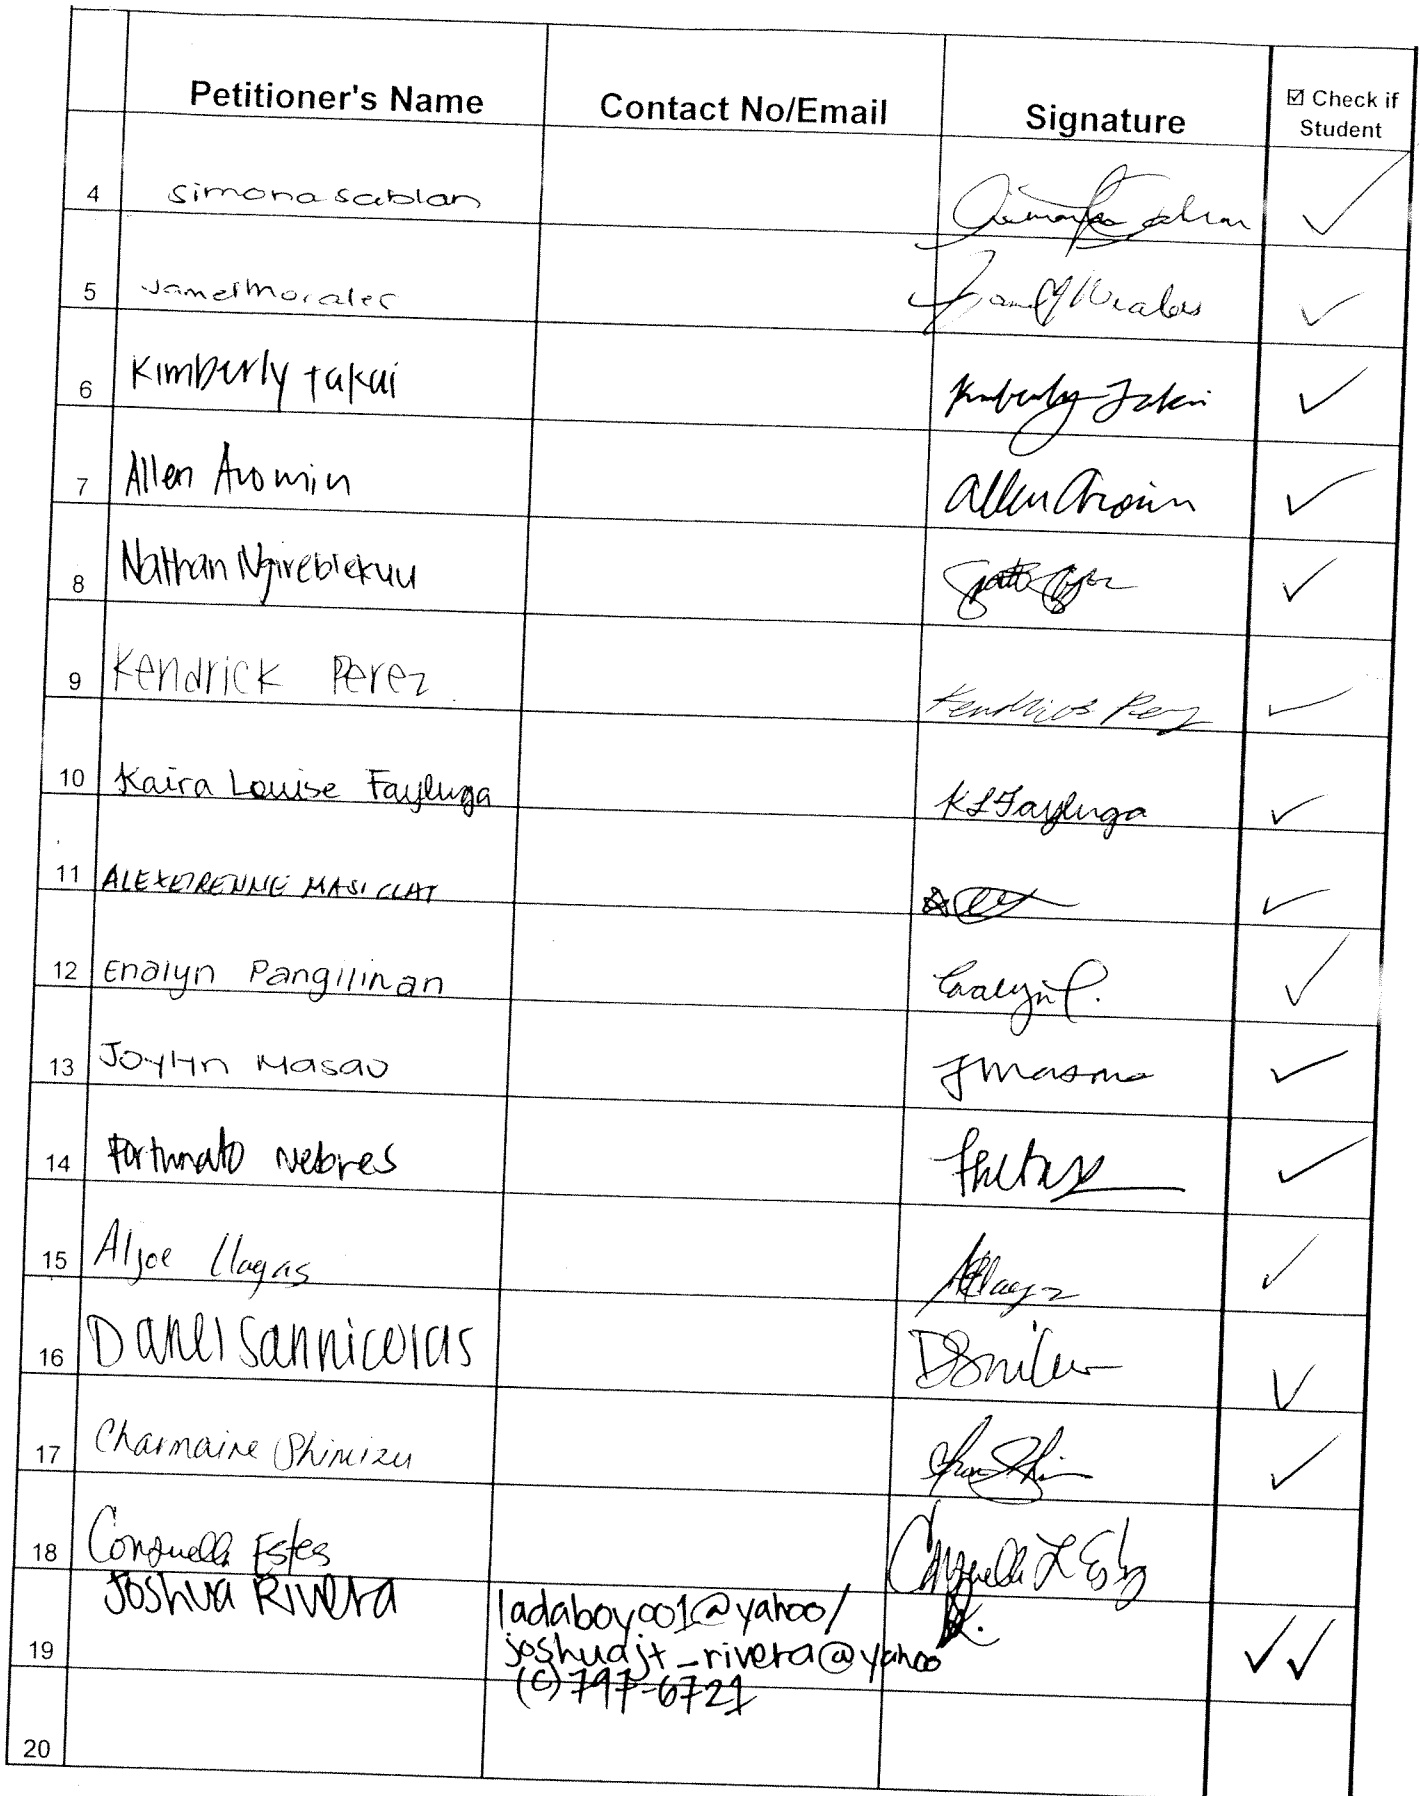 Petitioner's Name Contact No/Email Signature ☑ Check if
Student
4 Simona Sablan ✓
5 Janel Morales Janel Morales ✓
6 Kimberly Takai Kimberly Takai ✓
7 Allen Aromin Allen Aromin ✓
8 Nathan Ngireblekuu ✓
9 Kendrick Perez Kendrick Perez ✓
10 Kaira Louise Fayluga KLFayluga ✓
11 MASICLAT ✓
12 Enalyn Pangilinan Enalyn P. ✓
13 Joylyn Masao JMasao ✓
14 Fortunato Nebres ✓
15 Aljoe Llagas ✓
16 Sannicolas ✓
17 Charmaine Shimizu ✓
18 Estes
Joshua Rivera ladaboy001@yahoo/
19 joshuajt_rivera@yahoo ✓✓
(c) 797-6721
20